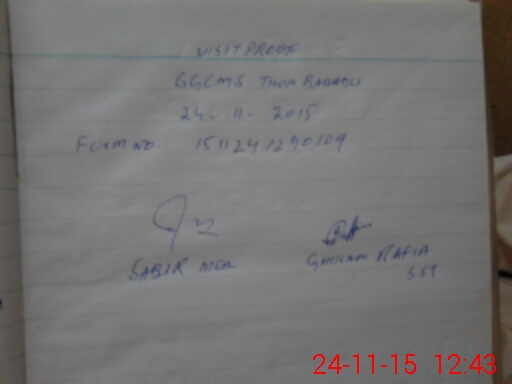 VISIT PROOF
GGCMS THOM
24 - 11 - 2015
FORM NO. 1511241230109
SABIR MEA GHULAM RAFIA
SST
24-11-15 12:43